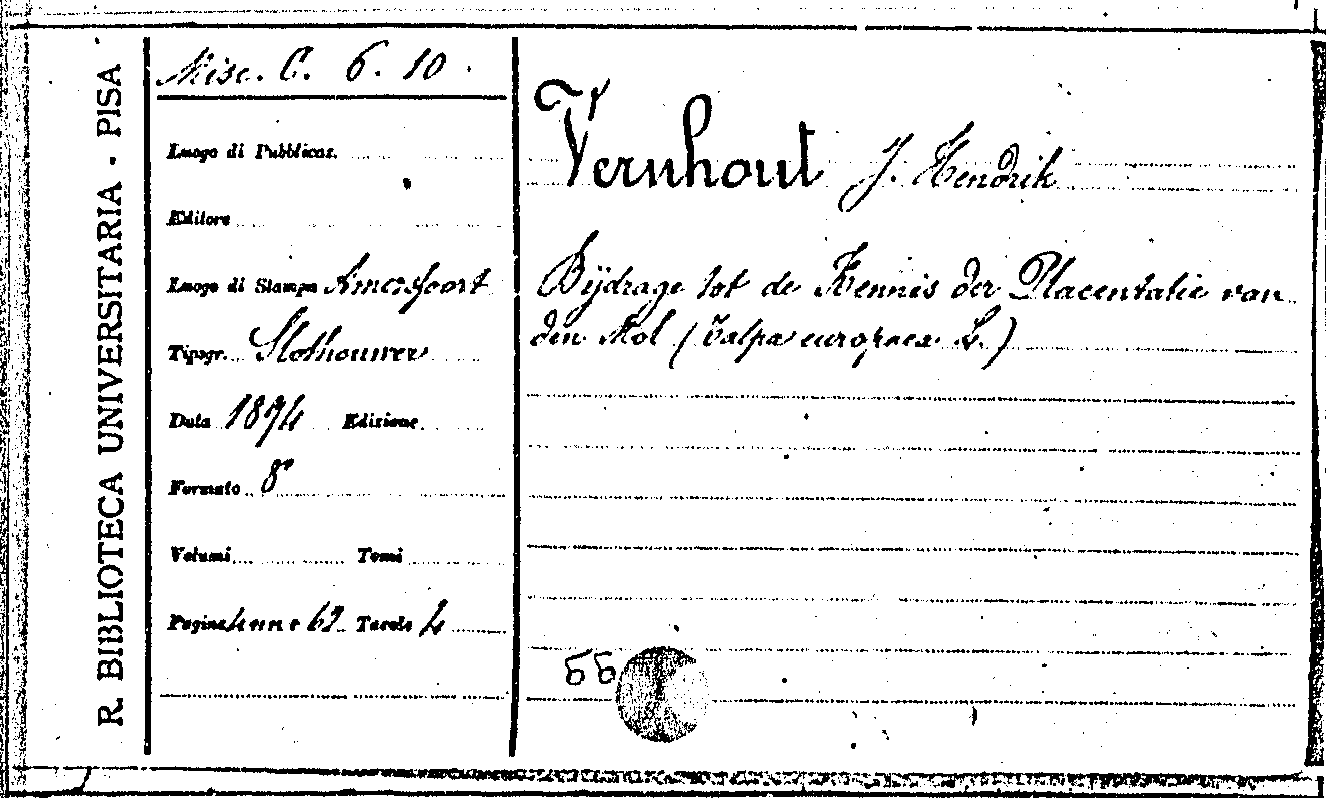 R. BIBLIOTECA UNIVERSITARIA - PISA
Misc. C. 6. 10.
Luogo di Pubblicaz.
Editore
Luogo di Stampa Amersfoort
Tipogr. Slothouwer
Data 1894 Edizione
Formato 8°
Volumi Tomi
Pagine 62 Tavole 4
Vernhout J. Hendrik
Bijdrage tot de Kennis der Placentatie van
den Mol (Talpa europaea L.)
55